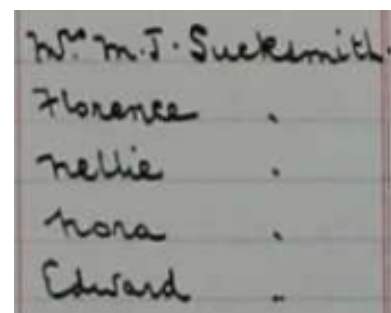 Mrs. M. J. Sucksmith.
Florence .
Nellie .
Nora .
Edward .